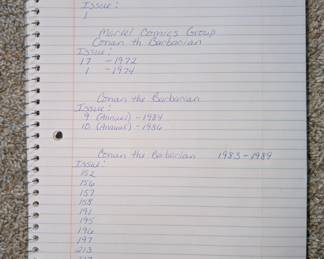 Issue:
1
Marvel Comics Group
Conan th Barbarian
Issue:
17 - 1972
1 - 1974
Conan the Barbarian
Issue:
9 (Annual) - 1984
10 (Annual) - 1986
Conan the Barbarian 1983-1989
Issue:
152
156
157
158
191
195
196
197
213